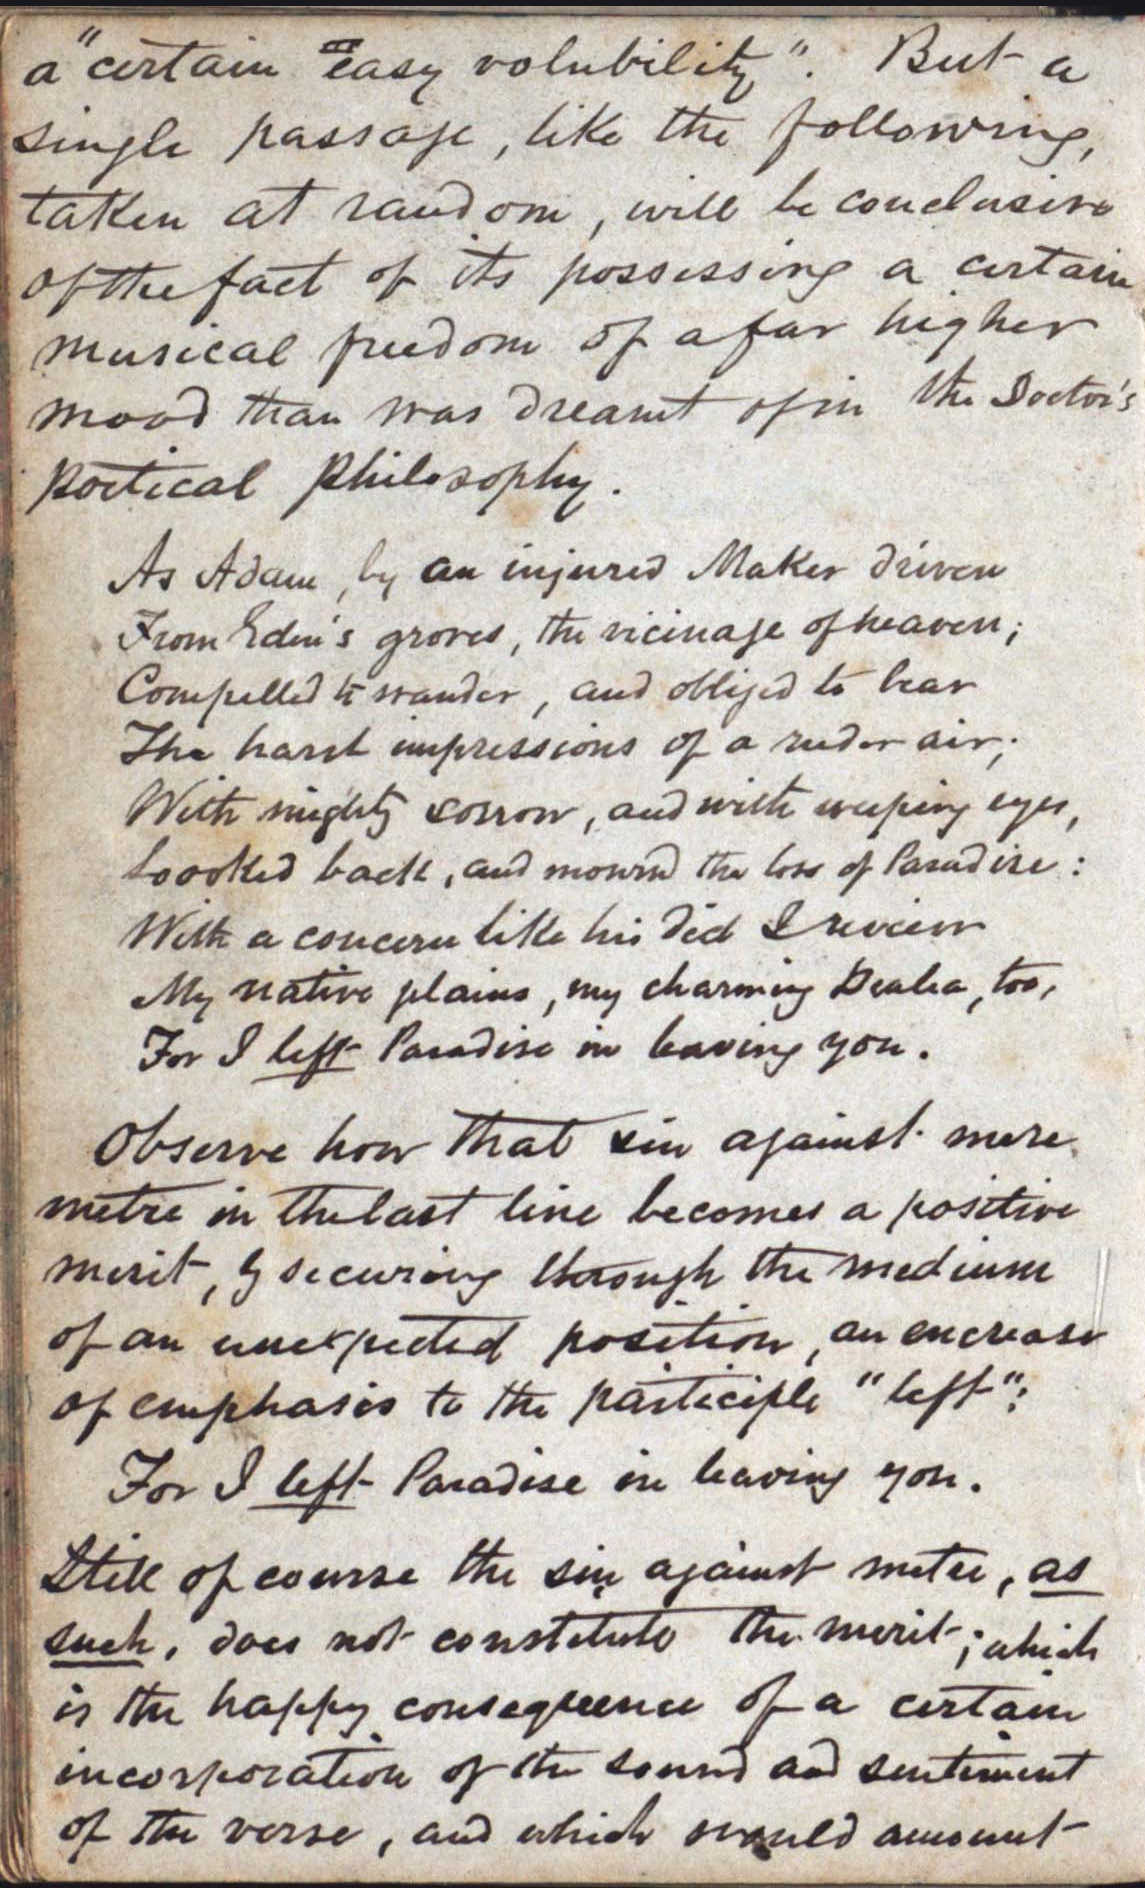 a "certain easy volubility". But a
single passage, like the following,
taken at random, will be conclusive
of the fact of its possessing a certain
musical freedom of a far higher
mood than was dreamt of in the Doctor's
poetical philosophy.
As Adam, by an injured Maker driven
From Eden's groves, the vicinage of heaven;
Compelled to wander, and obliged to bear
The harsh impressions of a ruder air;
With mighty sorrow, and with weeping eyes,
Loooked back, and mourn'd the loss of Paradise:
With a concern like his did I review
My native plains, my charming too,
For I left Paradise in leaving you.
Observe how that sin against mere
metre in the last line becomes a positive
merit, by securing through the medium
of an unexpected position, an encrease
of emphasis to the participle "left":
For I left Paradise in leaving you.
Still of course the sin against metre, as
such, does not constitute the merit; which
is the happy consequence of a certain
incorporation of the sound and sentiment
of the verse, and which would amount